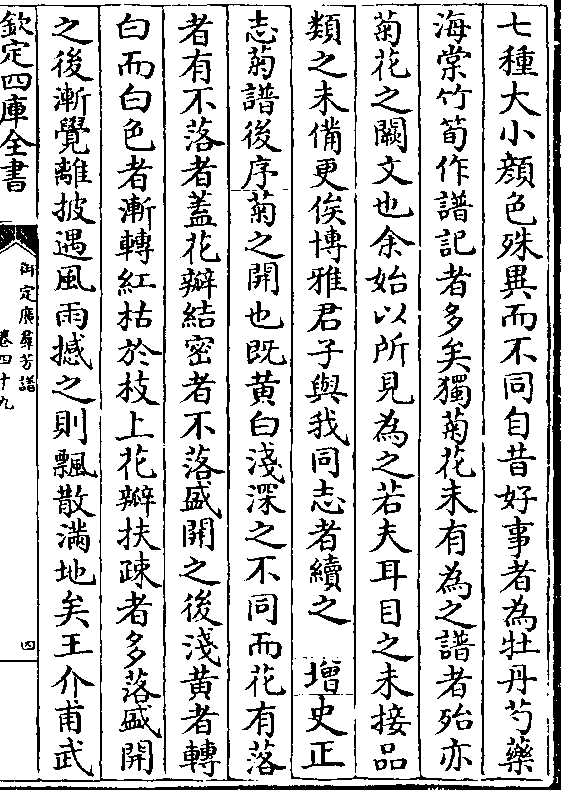 七種大小顔色殊異而不同自昔好事者為牡丹芍藥
海棠竹筍作譜記者多矣獨菊花未有為之譜者殆亦
菊花之闕文也余始以所見為之若夫耳目之未接品
類之未備更俟博雅君子與我同志者續之　增史正
志菊譜後序菊之開也既黄白淺深之不同而花有落
者有不落者蓋花瓣結密者不落盛開之後淺黄者轉
白而白色者漸轉紅枯於枝上花瓣扶疎者多落盛開
之後漸覺離披遇風雨撼之則飄散滿地矣王介甫武
欽定四庫全書
御定廣羣芳譜
卷四十九
四